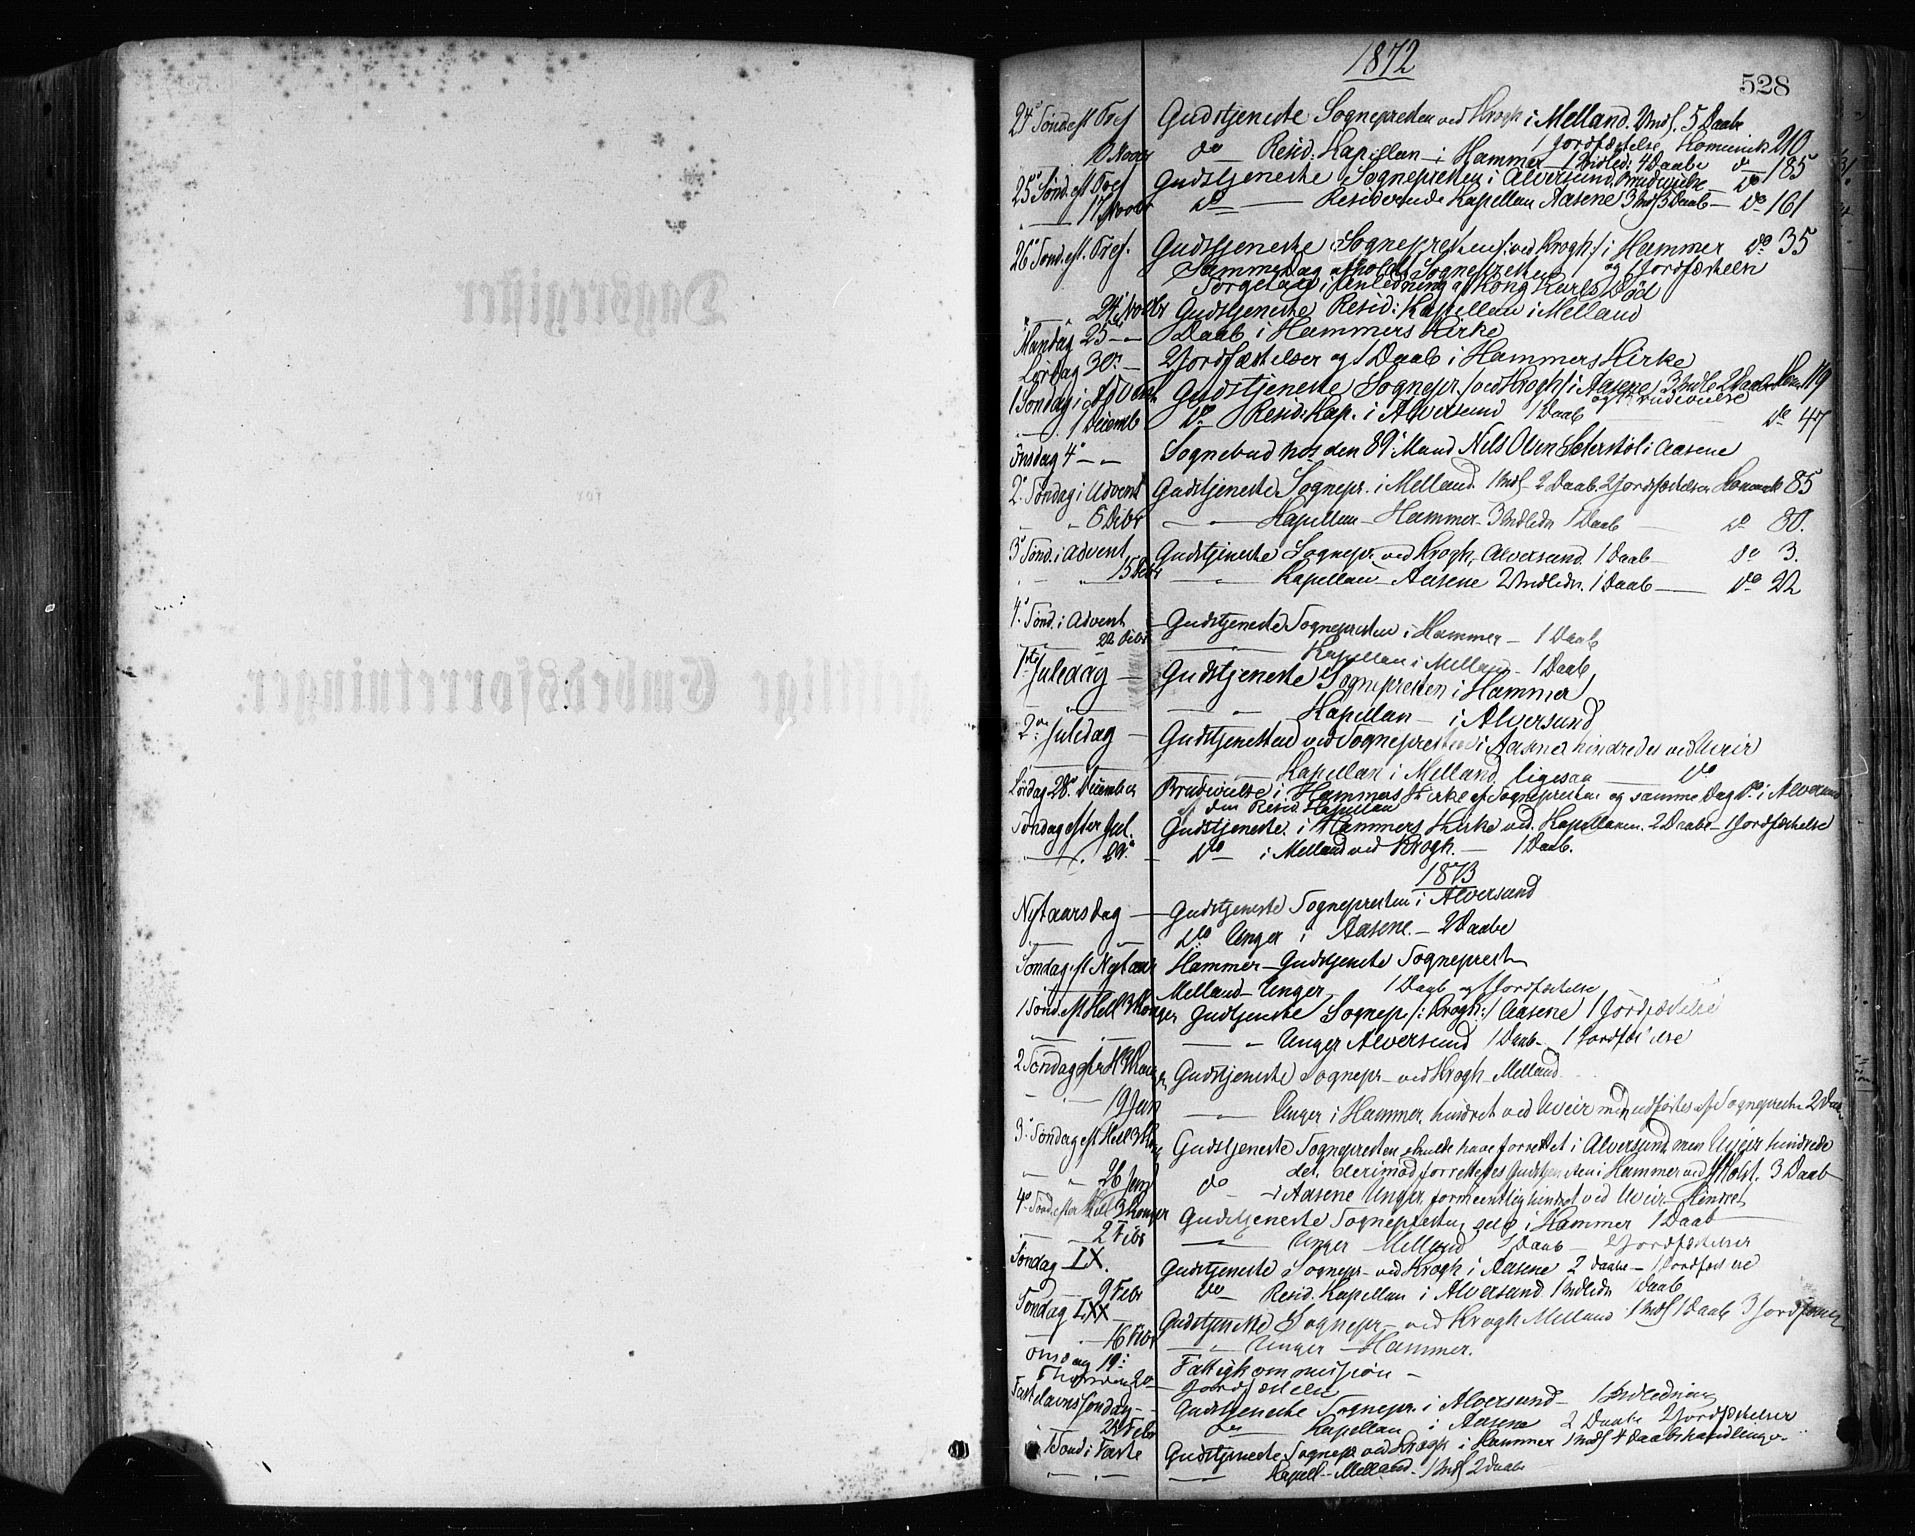 1872
528
24' Sønd eft Tref Gudstjeneste Sognepresten ved Krogh i Melland. 2 Indl. 5 Daab
1 Jordfæstelse Komunik. 210
10 Novbr do — Resid: Kapellan — i Hammer — 1 Indled: 4 Daabe do 185
25' Sønd. eft Tref Gudstjeneste Sognepresten i Alversund. Brudevielse — do
17 Novbr do — Residerende Kapellan Aasene 3 Indl 3 Daab — do 161
26' Sønd. eft. Tref. Gudstjeneste Sognepresten /: ved Krogh :/ i Hammer do 35
Samme Dag afholdt Sognepresten og 1 Jordfæstelse
Sørgetale i Anledning af Kong Karls Død
24' Novbr Gudstjeneste Resid: Kapellan i Melland
Mandag 25' — Daab i Hammers Kirke
Lørdag 30' — 2 Jordfæstelser og 1 Daab i Hammers Kirke
1 Søndag i Advent Gudstjeneste Sognepr. /: ved Krogh :/ i Aasene 3 Indle 2 Daabe 119
og Brudevielse
1 Decemb do Resid. Kap. i Alversund 1 Daab do 47
Onsdag 4' — Sognebud hos den 89' Mand Nils Olsen i Aasene
2' Søndag i Advent Gudstjeneste Sognepr. i Melland. 1 Indl — 2 Daab. 2 Jordfæstelser 85
Kapellan — Hammer — 3 Indledn 1 Daab — do 30.
3' Sønd. i Advent Gudstjeneste Sognepr. ved Krogh, Alversund. 1 Daab — do 3.
15 Debr Kapellan — Aasene 2 Indledn. 1 Daab — do 22
4' Sønd. i Advent Gudstjeneste Sognepresten i Hammer — 1 Daab
22 Debr Kapellan i Melland — 1 Daab
1ste Juledag — Gudstjeneste Sognepresten i Hammer
Kapellan — i Alversund
2den Juledag — Gudstjenesten ved Sognepresten i Aasene hindredes ved Uveir
Kapellan i Melland ligesaa — do
Lørdag 28' December Brudevielse i Hammers Kirke af Sognepresten og samme Dag do i Alversund
af den Resid. Kapellan
Søndag efter Jul. Gudstjeneste i Hammers Kirke ved Kapellanen. 2 Daabe — 1 Jordfæstelse
29' — do — i Melland ved Krogh. — 1 Daab.
1873
Nytaarsdag — Gudstjeneste Sognepresten i Alversund
do Unger i Aasene. — 2 Daabe
Søndag eft Nytaar Hammer — Gudstjeneste Sogneprest
Melland — Unger 1 Daab og 1 Jordfæstelse
1 Sønd. eft Hell 3 Konger Gudstjeneste Sognep /: Krogh :/ Aasene 1 Jordfæstelse
Unger Alversund 1 Daab — 1 Jordfæstelse
2 Søndag eftr H 3 Konger Gudstjeneste Sognepr — ved Krogh — Melland
19 Jan Unger i Hammer, hindret ved Uveir men udførtes af Sognepresten 2 Daab
3' Søndag eft Hell 3 Kong Gudstjeneste Sognepresten skulde have forrettet i Alversund, men Uveir hindrede
det. derimod forrettedes Gudstjenesten i Hammer ved Holst. 3 Daab
26 Jan do — i Aasene Unger, formentlig hindret ved Uveir — Hindret
4' Sønd. efter Hell 3 Konger Gudstjeneste Sognepresten selv i Hammer 1 Daab
2 Febr Unger Melland 1 Daab — 2 Jordfæstelser
Søndag LX. Gudstjeneste Sognepr — ved Krogh i Aasene 2 Daabe — 1 Jordfæstelse
9 Febr do — Resid. Kapellan i Alversund. 1 Indledn 1 Daab
Søndag LXX Gudstjeneste Sognepr — ved Krogh Melland 1 Indl 1 Daab 3
16 Febr Unger — Hammer.
Onsdag 19' Fattigkommission —
Thorsdag 20 Jordfæstelse
Fastelavns Søndag — Gudstjeneste Sognepr. i Alversund — 1 Indledning
23 Febr do Kapellan i Aasene 2 Daabe 2 Jordfæstelser
1 Sønd i Faste Gudstjeneste Sognepr ved Krogh i Hammer 1 Indl 4 Daabshandlinger
Kapell — Melland — 1 Indl 2 Daabe